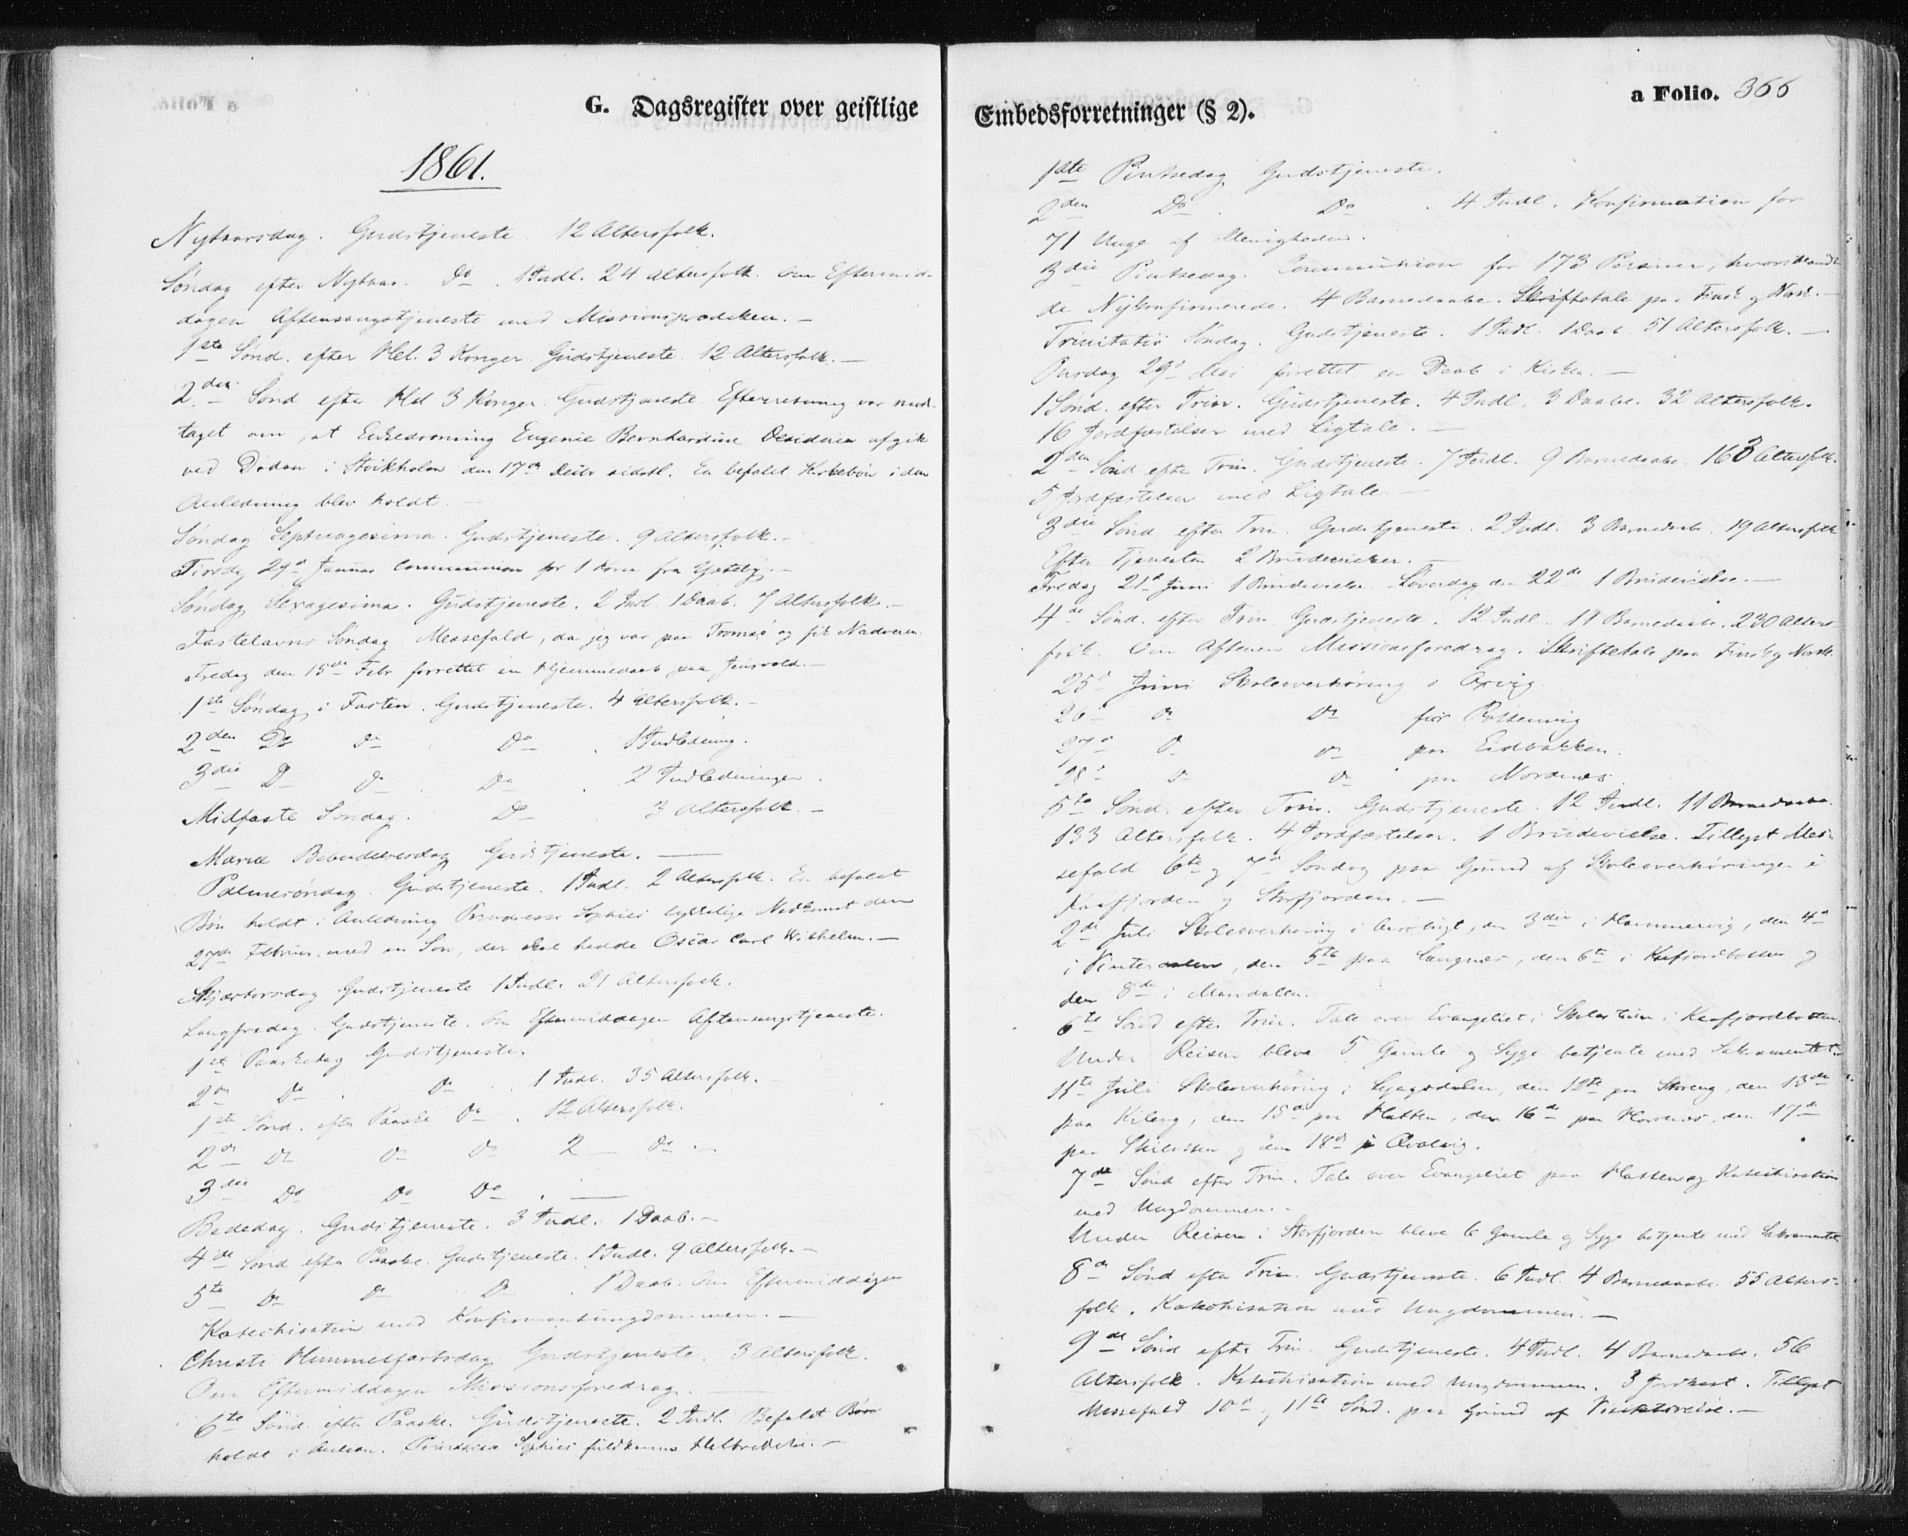 G. Dagsregister over geistlige
1861.
Nytaarsdag. Gudstjeneste. 12 Altersfolk.
Søndag efter Nytaar. Do . 1 Indl. 24 Altersfolk. Om Eftermid-
dagen Aftensangstjeneste med Missionsprædiken. —
1ste Sønd. efter Hel. 3 Konger. Gudstjeneste. 12 Altersfolk. —
2den Sønd efter Hel 3 Konger. Gudstjeneste. Efterretning var mod-
taget om, at Enkedronning Eugenie Bernhardine Desideria afgik
ved Døden i Stockholm den 17de Decbr sidstl. En befalet Kirkebøn i den
Anledning blev holdt. —
Søndag Septuagesima. Gudstjeneste. 9 Altersfolk. —
Tirsdag 29d Januar Communion for 1 Kone fra
Søndag Sexagesima. Gudstjeneste. 2 Indl. 1 Daab. 7 Altersfolk. —
Fastelavns Søndag Messefald, da jeg var paa Tromsø og fik Nadveren.
Fredag den 15de Febr. forrettet en Hjemmedaab paa
1ste Søndag i Fasten. Gudstjeneste. 4 Altersfolk. —
2den Do Do Do . 1 Indledning.
3die D Do Do . 2 Indledninger.
Midfaste Søndag. Do 3 Altersfolk. —
Mariæ Bebudelsesdag Gudstjeneste. —
Palmesøndag. Gudstjeneste. 1 Indl. 2 Altersfolk. En befalet
Bøn holdt i Anledning Prindsesse Sophies lykkelige Nedkomst den
27de Februar med en Søn, der skal hedde Oscar Carl Wilhelm. —
Skjærtorsdag Gudstjeneste 1 Indl. 21 Altersfolk.
Langfredag. Gudstjeneste. Om Eftermiddagen Aftensangstjeneste.
1ste Paaskedag Gudstjeneste.
2den Do . Do . 1 Indl. 35 Altersfolk. —
1ste Sønd. efter Paaske Do . 12 Altersfolk.
2den Do Do Do 2 — Do . —
3die Do Do Do . —
Bededag. Gudstjeneste. 3 Indl. 1 Daab. —
4de Sønd efter Paaske. Gudstjeneste. 1 Indl. 9 Altersfolk. —
5te Do Do Do . 1 Daab. Om Eftermiddagen
Katechisation med Konfirmantungdommen. —
Christi Himmelfartsdag Gudstjeneste. 3 Altersfolk.
Om Eftermiddagen Missionsforedrag.
6te Sønd. efter Paaske. Gudstjeneste. 2 Indl. Befalet Bøn
holdt i Anledn. Prindsesse Sophies fuldkomne Helbredelse. —
Embedsforretninger (§ 2).
a Folio. 366
1ste Pintsedag Gudstjeneste.
2den Do . Do . 4 Indl. Konfirmation for
71 Unge af Menigheden.
3die Pintsedag. Communion for 173 Personer, hvoriblandt
de Nykonfirmerede. 4 Barnedaabe. Skriftetale paa Finsk og Norsk. —
Trinitatis Søndag. Gudstjeneste. 1 Indl. 1 Daab. 51 Altersfolk. —
Onsdag 29d Mai forrettet en Daab i Kirken. —
1 Sønd. efter Trin. Gudstjeneste. 4 Indl. 3 Daabe. 32 Altersfolk.
16 Jordfæstelser med Ligtale. —
2den Sønd efter Trin. Gudstjeneste. 7 Indl. 9 Barnedaabe. 163 Altersfolk.
5 Jordfæstelser med Ligtale. —
3die Sønd efter Trin. Gudstjeneste. 2 Indl. 3 Barnedaabe. 19 Altersfolk
Efter Tjenesten 2 Brudevielser. —
Fredag 21d Juni 1 Brudevielse. Løverdag den 22de 1 Brudevielse. —
4de Sønd. efter Trin. Gudstjeneste. 12 Indl. 11 Barnedaabe. 230 Alters
folk. Om Aftenen Missionsforedrag. Skriftetale paa Finsk og Norsk.
25d Juni Skoleoverhøring i
26d Do Do for
27d D Do paa Eidbakken.
28d D Do paa Nordnæs.
5te Sønd. efter Trin. Gudstjeneste. 12 Indl. 11 Barnedaabe.
133 Altersfolk. 4 Jordfæstelser. 1 Brudevielse. Tillyst Mes-
sefald 6te og 7de Søndag paa Grund af Skoleoverhøringer i
Kaafjorden og Storfjorden. —
2d Juli Skoleoverhøring i den 3die i den 4d
i den 5te paa Langnæs, den 6te i Kaafjordbotten og
den 8de i Mandalen.
6te Sønd efter Trin. Tale over Evangeliet i Skolestuen i Kaafjordbotten.
Under Reisen bleve 5 Gamle og Syge betjente med Sakramentet.
11te Juli Skoleoverhøring i den 12te paa Storeng, den 13de
paa Kileng, den 15de paa Hatten, den 16de paa Hornnæs, den 17de
paa Skibotten og den 18de i Qvalvig.
7de Sønd efter Trin. Tale over Evangeliet paa Hatten og Katechisation
med Ungdommen. —
Under Reisen i Storfjorden bleve 6 Gamle og Syge betjente med Sakramentet.
8de Sønd efter Trin. Gudstjeneste. 6 Indl. 4 Barnedaabe. 55 Alters-
folk. Katechisation med Ungdommen. —
9de Sønd efter Trin. Gudstjeneste. 4 Indl. 4 Barnedaabe. 56
Altersfolk. Katechisation med Ungdommen. 3 Jordkast. Tillyst
Messefald 10de og 11te Sønd. paa Grund af Visitatsreise. —